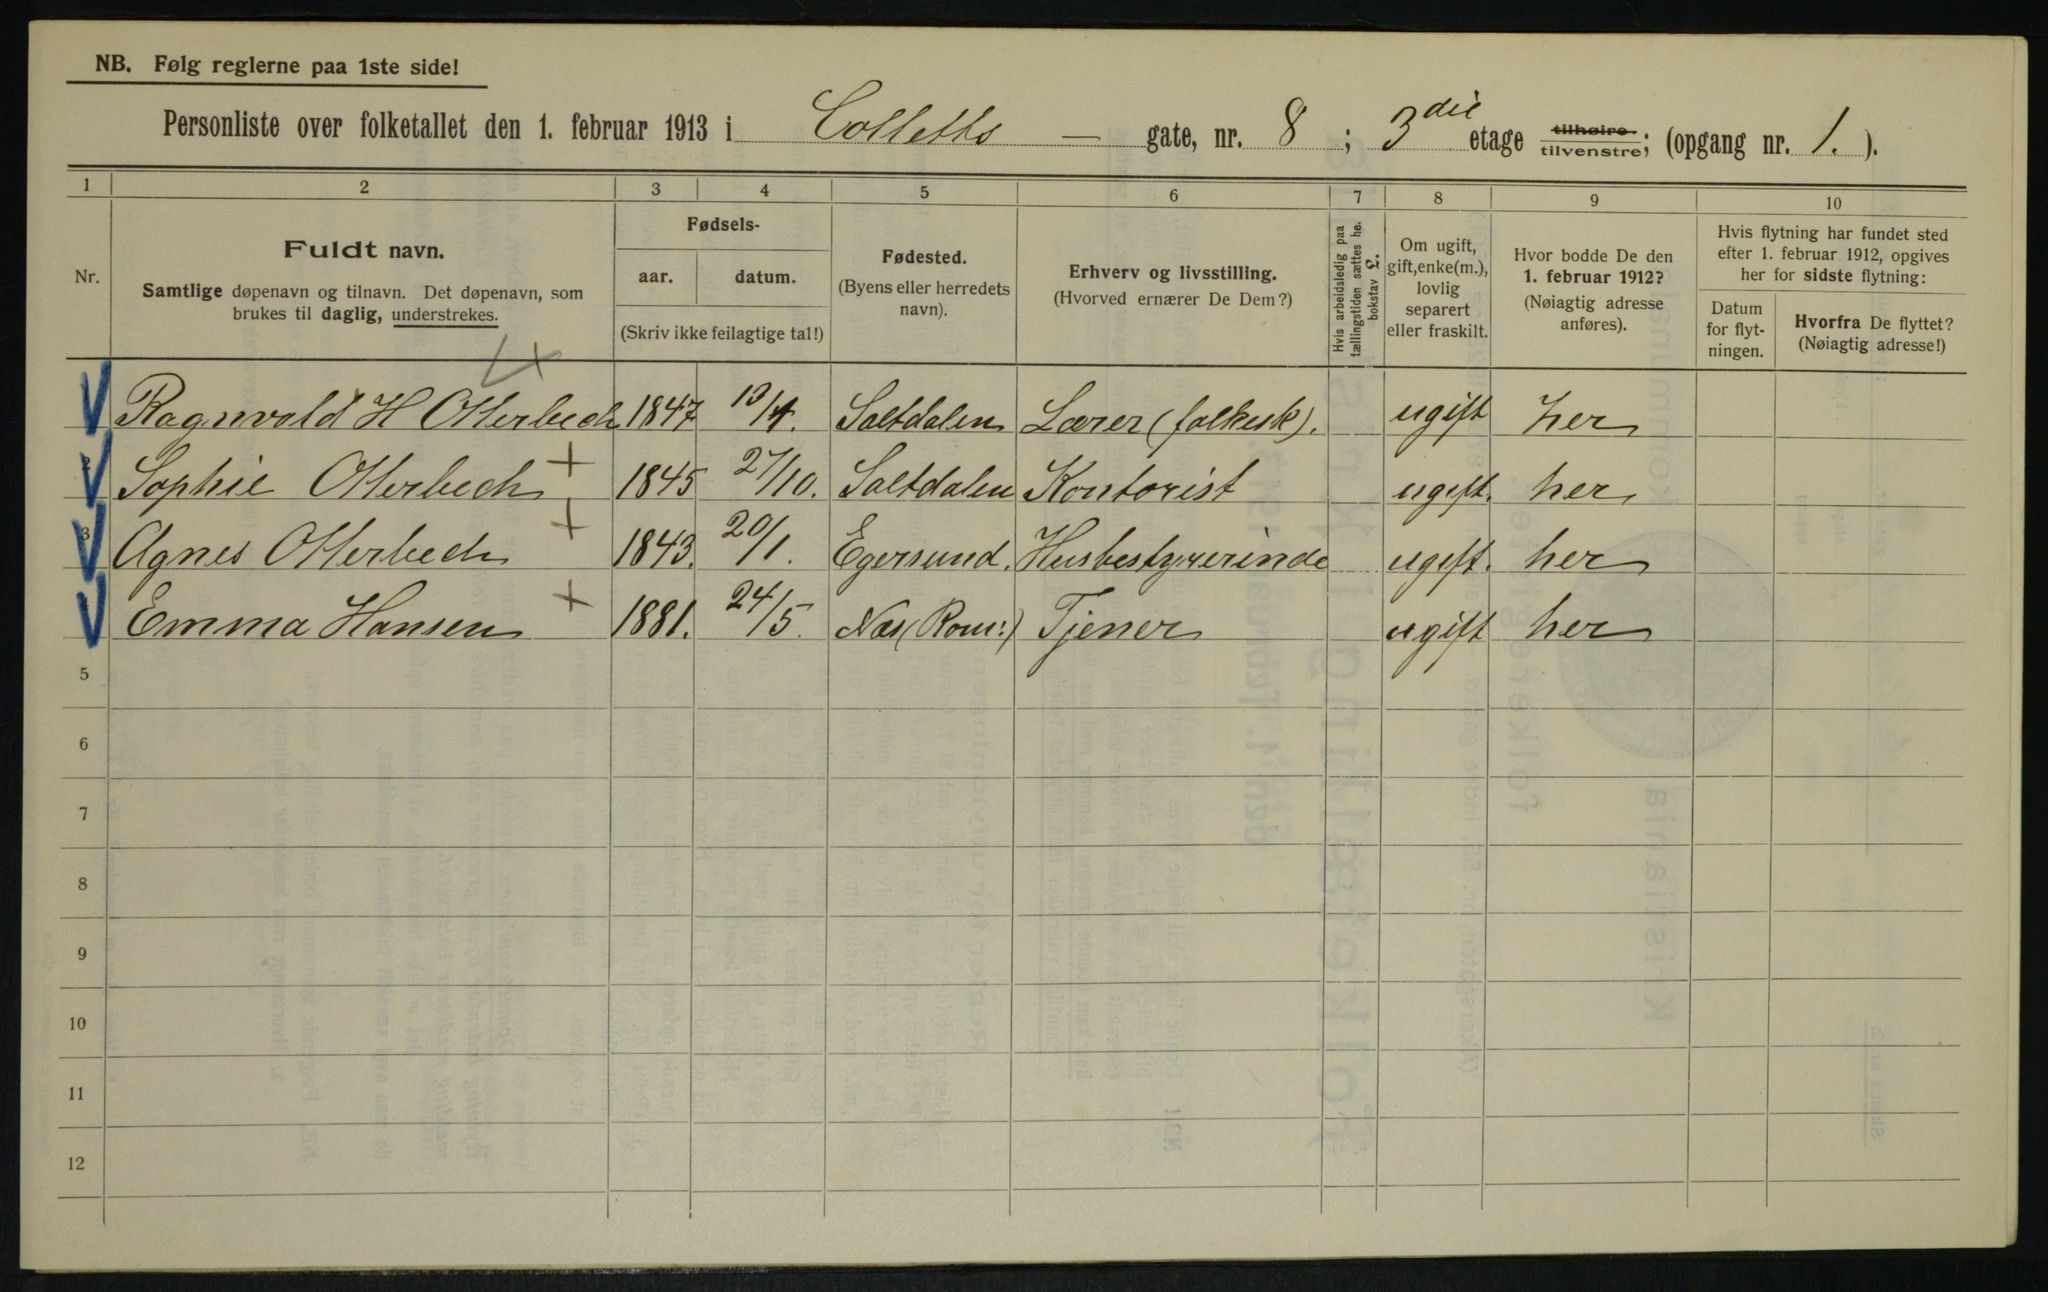 NB. Følg reglerne paa 1ste side!
Personliste over folketallet den 1. februar 1913 i Colletts — gate, nr. 8 ; 3die etage tilhøire tilvenstre; (opgang nr. 1. ).
1 2 3 4 5 6 7 8 9 10
Nr.
Fuldt navn.
Samtlige døpenavn og tilnavn. Det døpenavn, som
brukes til daglig, understrekes.
Fødsels-
aar. datum.
(Skriv ikke feilagtige tal!)
Fødested.
(Byens eller herredets
navn).
Erhverv og livsstilling.
(Hvorved ernærer De Dem?)
Hvis arbeidsledig paa
tællingstiden sættes he.
bokstav L.
Om ugift,
gift, enke(m.),
lovlig
separert
eller fraskilt.
Hvor bodde De den
1. februar 1912?
(Nøiagtig adresse
anføres).
Hvis flytning har fundet sted
efter 1. februar 1912, opgives
her for sidste flytning:
Datum
for flyt-
ningen.
Hvorfra De flyttet?
(Nøiagtig adresse!)
Ragnvald H Otterbech 1847 13/4. Saltdalen Lærer (folkesk). ugift her
2 Sophie Otterbech + 1845 27/10. Saltdalen Kontorist ugift. her
3 Agnes Otterbech + 1843. 20/1. Egersund. Husbestyrerinde ugift. her
Emma Hansen + 1881. 24/5. Næs (Rom:) Tjener ugift her
5
6
7
8
9
10
11
12